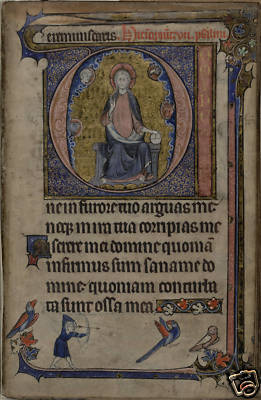 psalmi
D
ne in furore tuo arguas me
neqꝫ in ira tua corripias me
iserere mei domine quoniā
infirmus sum sana me do
mine quoniam conturba
ta sunt ossa mea